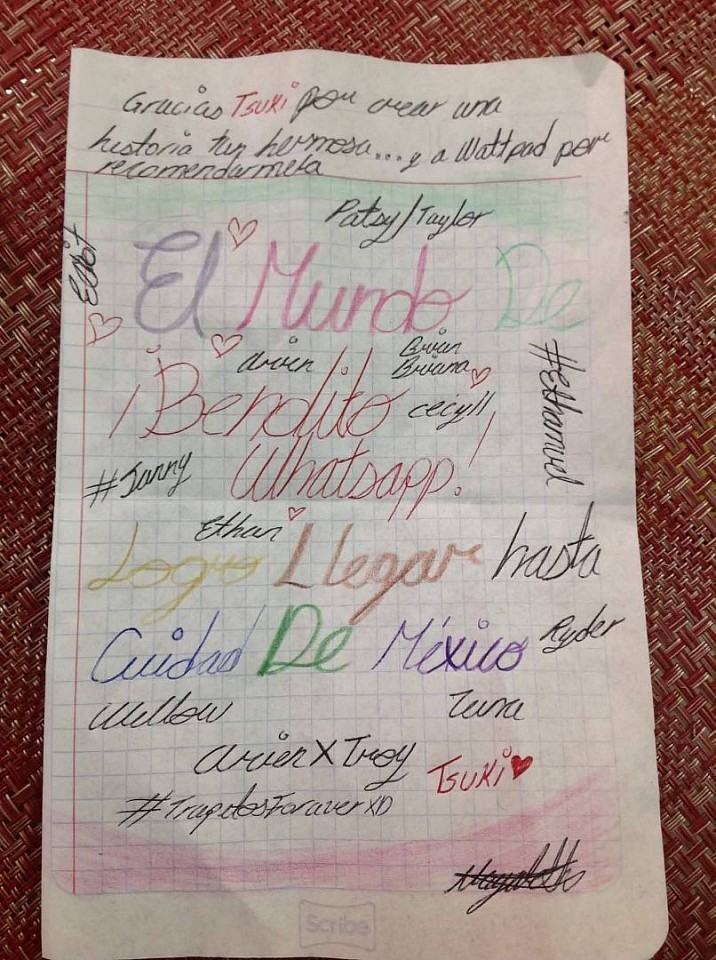 Gracias Tsuki por crear una
historia tan hermosa... y a Wattpad por
recomendarmela
Patsy/Taylor
Elliot
El Mundo De
arvin
Brian
Briana
¡Bendito
cecyll
Whatsapp!
#Janny
Ethan
Logro Llegar hasta
Cuidad De México
Ryder
Wellow
Zuna
arvin X Troy
Tsuki
Scribe